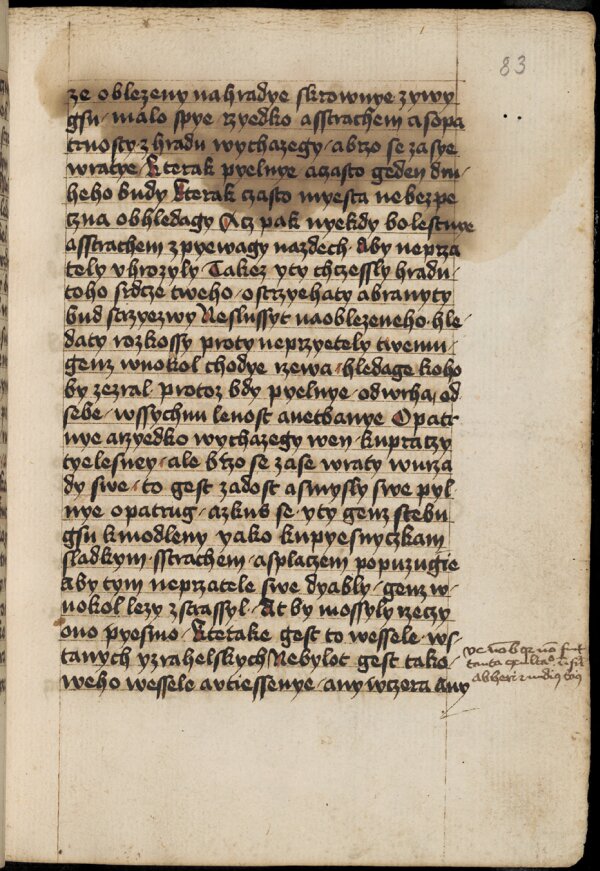 83
ze oblezeny na hradye skrownye zywy
gsu · malo spye rzyedko asstrachem a sopa
trnosty z hradu wychazegy · abrzo se zasye
wratye · Kterak pyelnye a czasto geden dru
heho budy Kterak czasto myesta nebezpe
czna obhledagy Acz pak nyekdy bolestnye
asstrachem zpyewagy na zdech · aby neprza
tely vhrozyly · Takez yty chczessly hradu
toho srdcze tweho · ostrzyehaty a branyty
bud strzyezwy Neslussyt na oblezeneho · hle
daty rozkossy proty neprzyetely twemu ·
genz wuokol chodye rzewa · hledage koho
by zezral · protoz bdy pyelnye · odwrha od
sebe · wssychnu lenost a netbanye Opatr
nye a rzyedko wychazegy wen · ku praczy
tyelesney · ale brzo se zase wraty wurza
dy swe · to gest zadost a smysly swe pyl
nye opatrug · a zkus se · yty genz s tebu
gsu k modleny yako ku pyesnyczkam
sladkym · sstrachem · a splaczem popuzugie
Aby tym neprzatele swe dyably · genz w
uokol lezy zstrassyl · At by mossyly rzeczy
ono pyesmo · Kterake gest to wessele · ws
tanych yzrahelskych Nebylot gest tako
weho wessele a vtiessenye · any wczera Any
ve nob qz no fuit
tanta exulta
ab heri